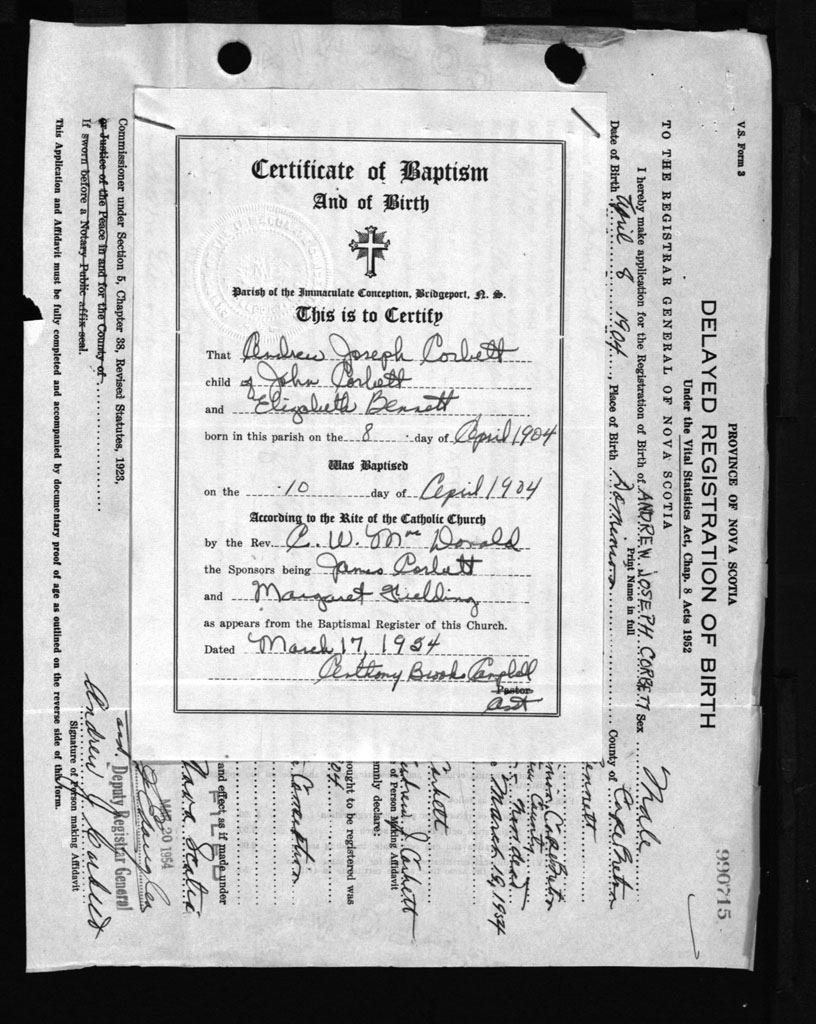 Certificate of Baptism
And of Birth
Parish of the Immaculate Conception, Bridgeport, N. S.
This is to Certify
That Andrew Joseph Corbett
child of John Corbett
and Elizabeth Bennett
born in this parish on the 8 day of April 1904
Was Baptised
on the 10 day of April 1904
According to the Rite of the Catholic Church
by the Rev. C. W. McDonald
the Sponsors being James Corbett
and Margaret Fielding
as appears from the Baptismal Register of this Church.
Dated March 17, 1954
Anthony Brooks Campbell
Pastor
Asst
V.S. Form 3
PROVINCE OF NOVA SCOTIA
990715
DELAYED REGISTRATION OF BIRTH
Under the Vital Statistics Act, Chap. 8 Acts 1952
TO THE REGISTRAR GENERAL OF NOVA SCOTIA
I hereby make application for the Registration of Birth of ANDREW JOSEPH CORBETT Sex Male
Print Name in full
Date of Birth April 8 1904, Place of Birth Dominion County of Cape Breton
ennett
Cape Breton
County
March 18, 1954
Andrew J. Corbett
of Person Making Affidavit
mnly declare:
ought to be registered was
04
and effect as if made under
FILED
Nova Scotia
MAR 20 1954
and. Deputy Registrar General
Commissioner under Section 5, Chapter 38, Revised Statutes, 1923,
or Justice of the Peace in and for the County of
If sworn before a Notary Public affix seal.
Andrew J. Corbett
Signature of Person making Affidavit
This Application and Affidavit must be fully completed and accompanied by documentary proof of age as outlined on the reverse side of this form.